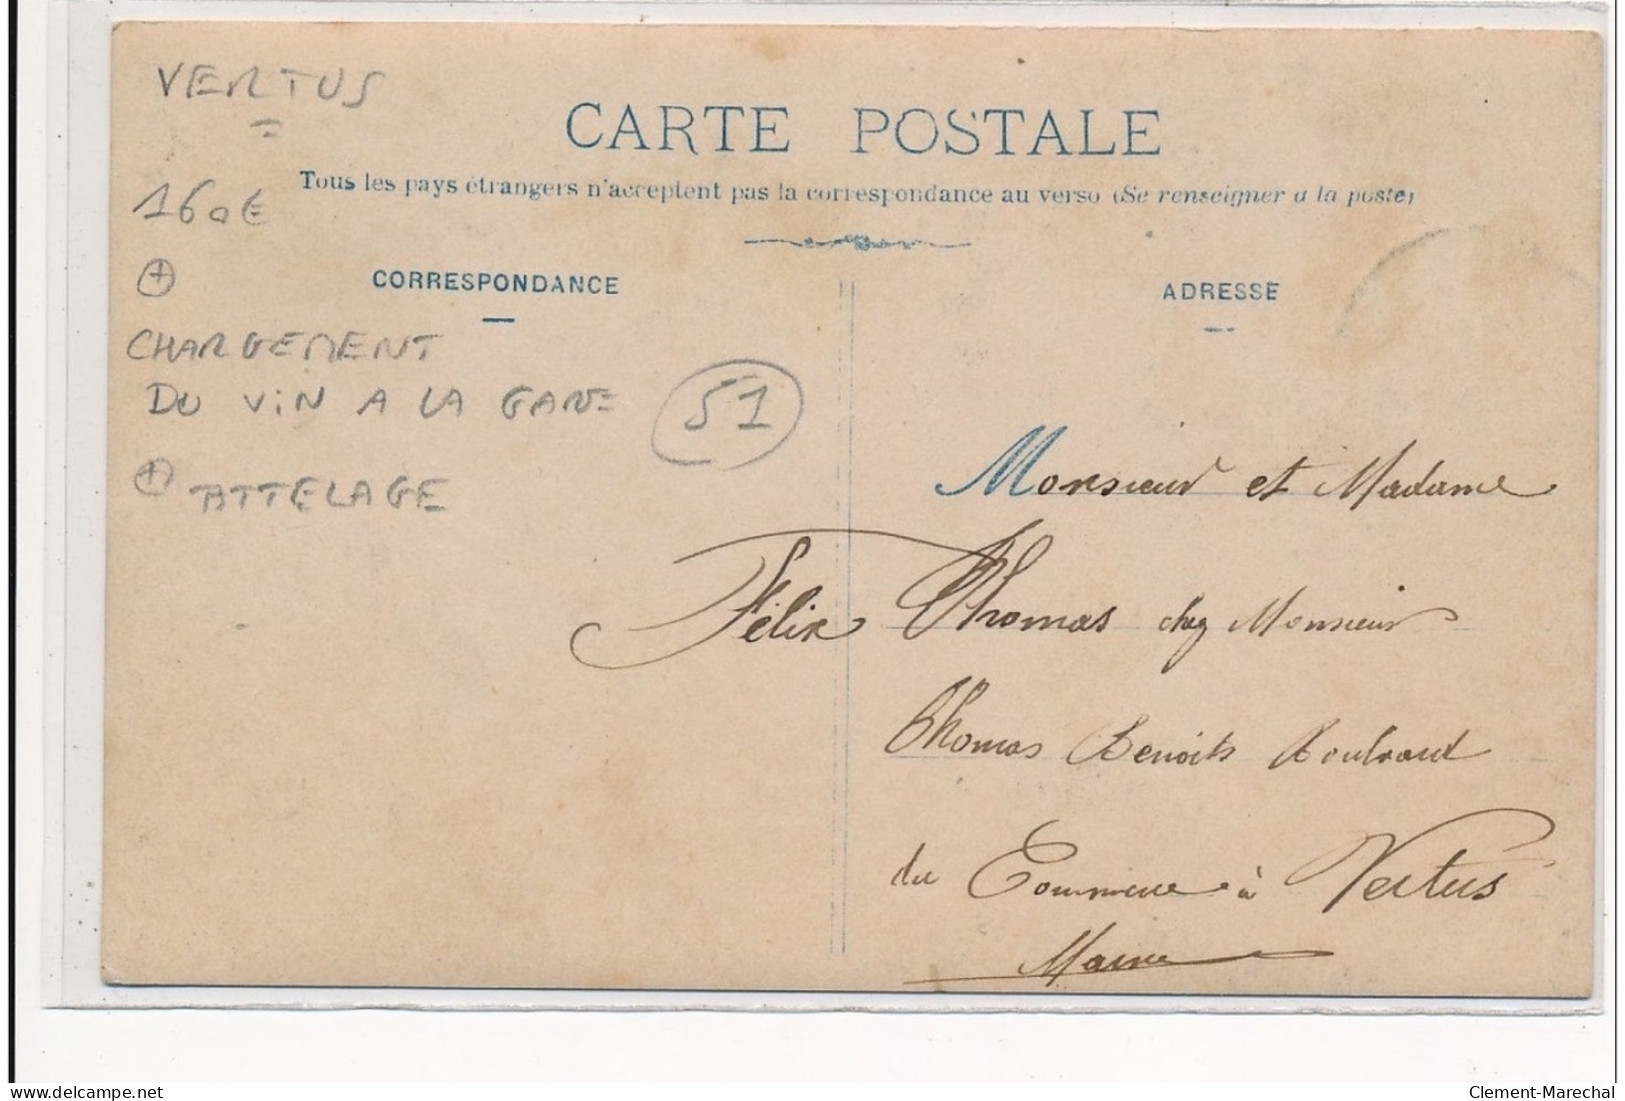 VERTUS
CARTE POSTALE
Tous les pays étrangers n'acceptent pas la correspondance au verso (Se renseigner à la poste)
160€
CORRESPONDANCE
ADRESSE
+
CHARGEMENT
DU VIN A LA GARE
51
+ ATTELAGE
Monsieur et Madame
Félix Thomas chez Monsieur
Thomas Benoits Boulvard
du Commerce à Vertus
Marne
delcampe.net
Clement-Marechal